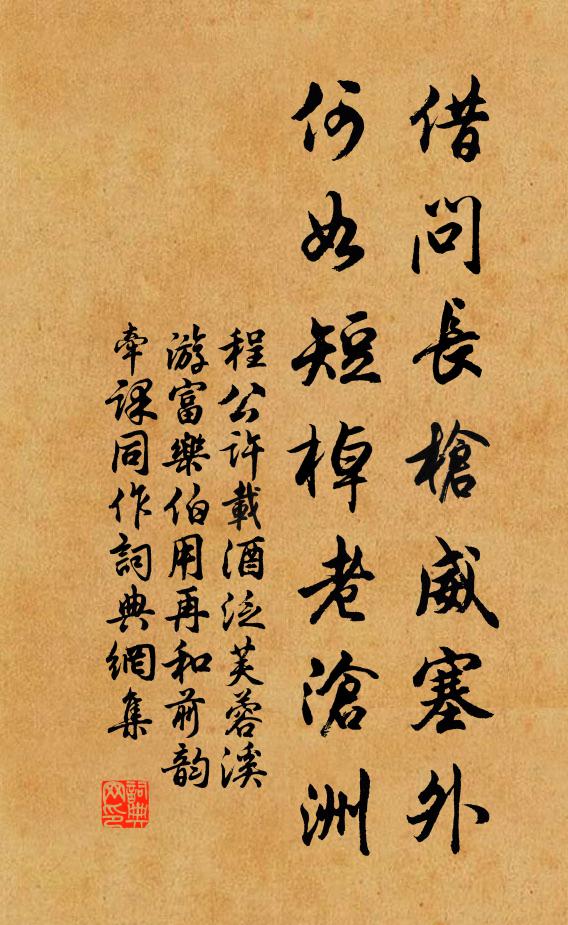 借問長槍威塞外
何如短棹老滄洲
程公許載酒泛芙蓉溪
游富樂伯用再和前韵
牽課同作詞典網集
詞典網印